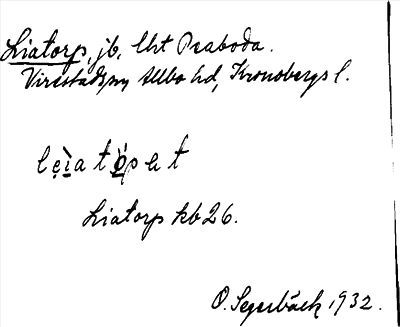 Liatorp, jb, lht Råaboda.
Virestads sn Allbo hd, Kronobergs l.
Liatorp kb 26.
O. Segerbäck 1932.